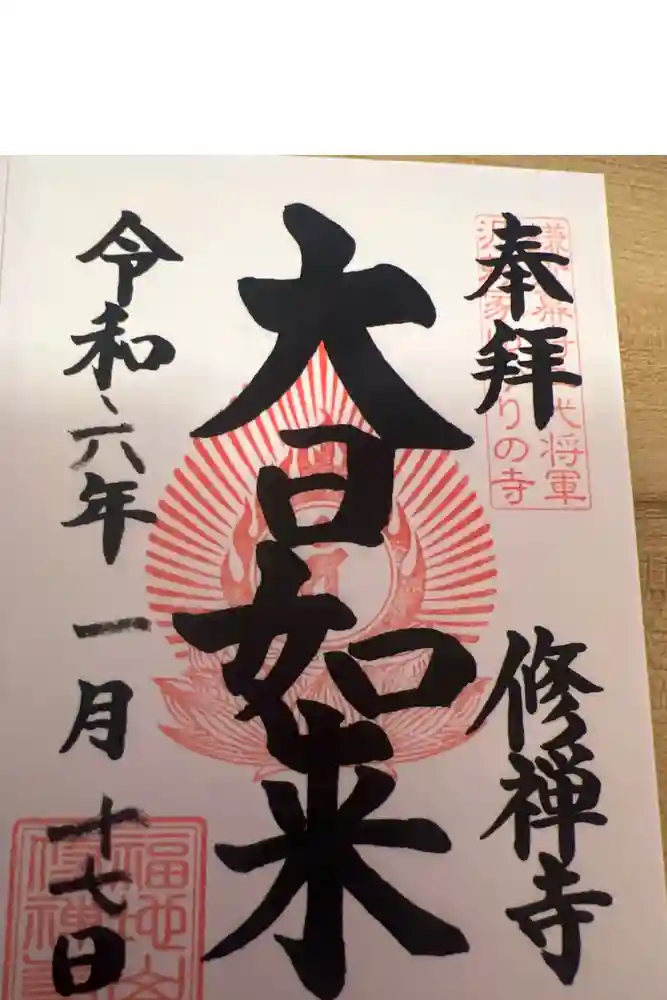 奉拝
代将軍
りの寺
修禅寺
大日如来
令和六年一月十七日
福地山
修禅寺